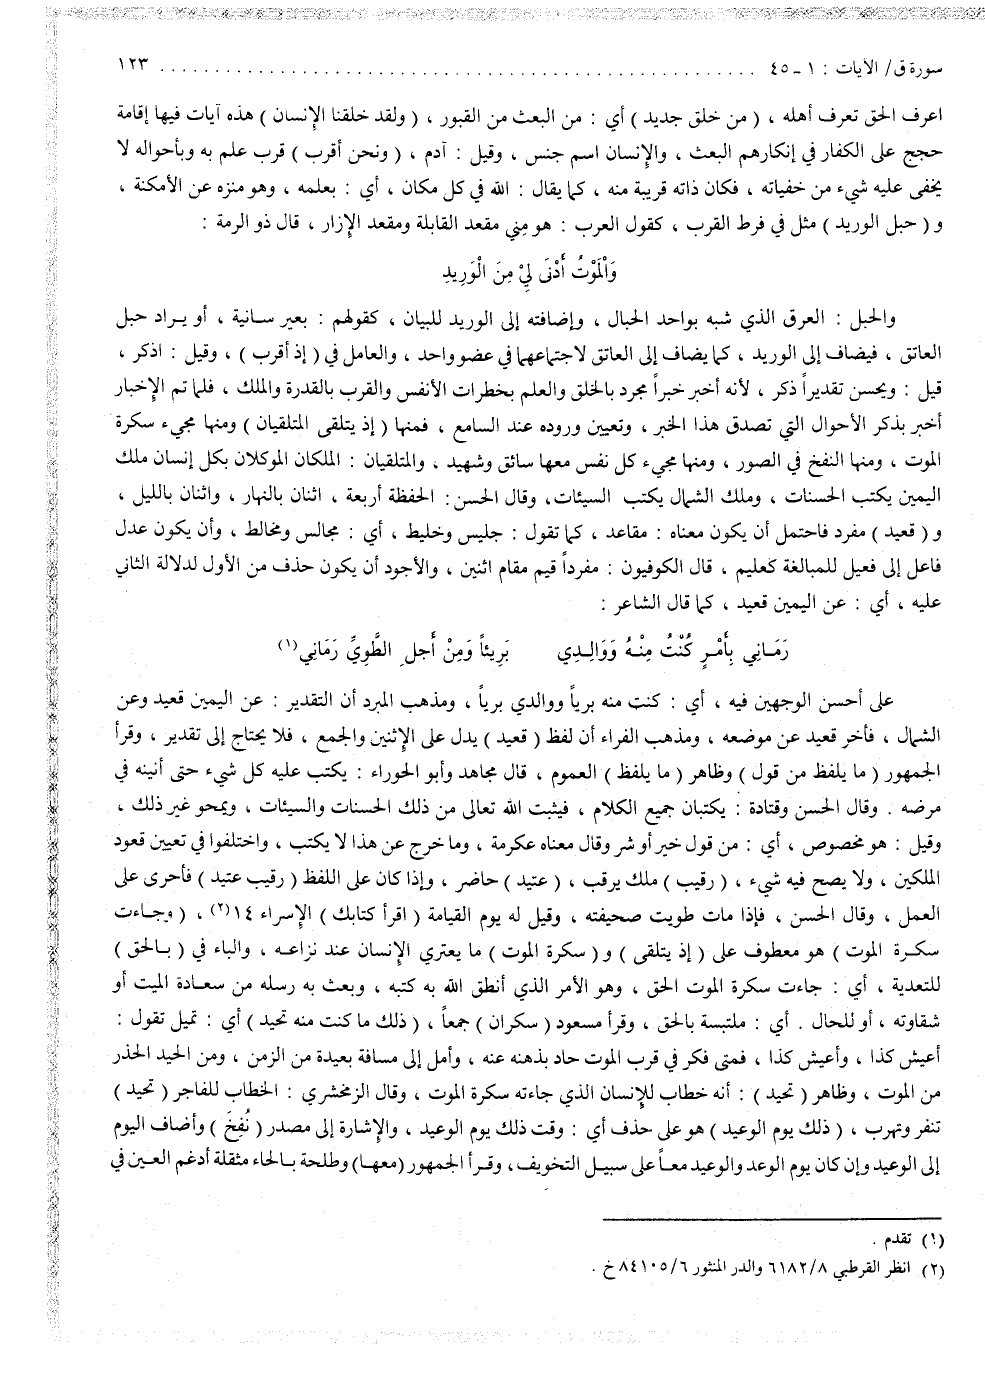 سورة ق/ الآيات : ١ ـ ٤٥ ............................................................ ١٢٣
اعرف الحق تعرف أهله ، ( من خلق جديد ) أي : من البعث من القبور ، ( ولقد خلقنا الإِنسان ) هذه آيات فيها إقامة
حجج على الكفار في إنكارهم البعث ، والإِنسان اسم جنس ، وقيل : آدم ، ( ونحن أقرب ) قرب علم به وبأحواله لا
يخفى عليه شيء من خفياته ، فكان ذاته قريبة منه ، كما يقال : الله في كل مكان ، أي : بعلمه ، وهو منزه عن الأمكنة ،
و ( حبل الوريد ) مثل في فرط القرب ، كقول العرب : هو مِني مقعد القابلة ومقعد الإِزار ، قال ذو الرمة :
وَالْمَوْتُ أَدْنَى لِيْ مِنَ الْوَرِيدِ
والحبل : العرق الذي شبه بواحد الحبال ، وإضافته إلى الوريد للبيان ، كقولهم : بعير سانية ، أو يراد حبل
العاتق ، فيضاف إلى الوريد ، كما يضاف إلى العاتق لاجتماعهما في عضو واحد ، والعامل في ( إذ أقرب ) ، وقيل : اذكر ،
قيل : ويحسن تقديراً ذكر ، لأنه أخبر خبراً مجرد بالخلق والعلم بخطرات الأنفس والقرب بالقدرة والملك ، فلما تم الإِخبار
أخبر بذكر الأحوال التي تصدق هذا الخبر ، وتعيين وروده عند السامع ، فمنها ( إذ يتلقى المتلقيان ) ومنها مجيء سكرة
الموت ، ومنها النفخ في الصور ، ومنها مجيء كل نفس معها سائق وشهيد ، والمتلقيان : الملكان الموكلان بكل إنسان ملك
اليمين يكتب الحسنات ، وملك الشمال يكتب السيئات، وقال الحسن: الحفظة أربعة ، اثنان بالنهار ، واثنان بالليل ،
و ( قعيد ) مفرد فاحتمل أن يكون معناه : مقاعد ، كما تقول : جليس وخليط ، أي : مجالس ومخالط ، وأن يكون عدل
فاعل إلى فعيل للمبالغة كعليم ، قال الكوفيون : مفرداً قيم مقام اثنين ، والأجود أن يكون حذف من الأول لدلالة الثاني
عليه ، أي : عن اليمين قعيد ، كما قال الشاعر :
رَمَانِي بِأَمْرٍ كُنْتُ مِنْهُ وَوَالِدِي بَرِيئاً وَمِنْ أَجلِ الطَّوِيِّ رَمَانِي(١)
على أحسن الوجهين فيه ، أي : كنت منه برياً ووالدي برياً ، ومذهب المبرد أن التقدير : عن اليمين قعيد وعن
الشمال ، فأخر قعيد عن موضعه ، ومذهب الفراء أن لفظ ( قعيد ) يدل على الإِثنين والجمع ، فلا يحتاج إلى تقدير ، وقرأ
الجمهور ( ما يلفظ من قول ) وظاهر ( ما يلفظ ) العموم ، قال مجاهد وأبو الحوراء : يكتب عليه كل شيء حتى أنينه في
مرضه . وقال الحسن وقتادة : يكتبان جميع الكلام ، فيثبت الله تعالى من ذلك الحسنات والسيئات ، ويمحو غير ذلك ،
وقيل : هو مخصوص ، أي : من قول خير أو شر وقال معناه عكرمة ، وما خرج عن هذا لا يكتب ، واختلفوا في تعيين قعود
الملكين ، ولا يصح فيه شيء ، ( رقيب ) ملك يرقب ، ( عتيد ) حاضر ، وإذا كان على اللفظ ( رقيب عتيد ) فأحرى على
العمل ، وقال الحسن ، فإذا مات طويت صحيفته ، وقيل له يوم القيامة ( اقرأ كتابك ) الإسراء ١٤(٢) ، ( وجاءت
سكرة الموت ) هو معطوف على ( إذ يتلقى ) و ( سكرة الموت ) ما يعتري الإِنسان عند نزاعه ، والباء في ( بالحق )
للتعدية ، أي : جاءت سكرة الموت الحق ، وهو الأمر الذي أنطق الله به كتبه ، وبعث به رسله من سعادة الميت أو
شقاوته ، أو للحال . أي : ملتبسة بالحق ، وقرأ مسعود ( سكران ) جمعاً ، ( ذلك ما كنت منه تحيد ) أي : تميل تقول :
أعيش كذا ، وأعيش كذا ، فمتى فكر في قرب الموت حاد بذهنه عنه ، وأمل إلى مسافة بعيدة من الزمن ، ومن الحيد الحذر
من الموت ، وظاهر ( تحيد ) : أنه خطاب للإِنسان الذي جاءته سكرة الموت ، وقال الزمخشري : الخطاب للفاجر ( تحيد )
تنفر وتهرب ، ( ذلك يوم الوعيد ) هو على حذف أي : وقت ذلك يوم الوعيد ، والإِشارة إلى مصدر ( نُفِخَ ) وأضاف اليوم
إلى الوعيد وإن كان يوم الوعد والوعيد معاً على سبيل التخويف، وقرأ الجمهور (معها) وطلحة بالحاء مثقلة أدغم العين في
(١) تقدم .
(٢) انظر القرطبي ٦١٨٢/٨ والدر المنثور ٨٤١٠٥/٦ خ .